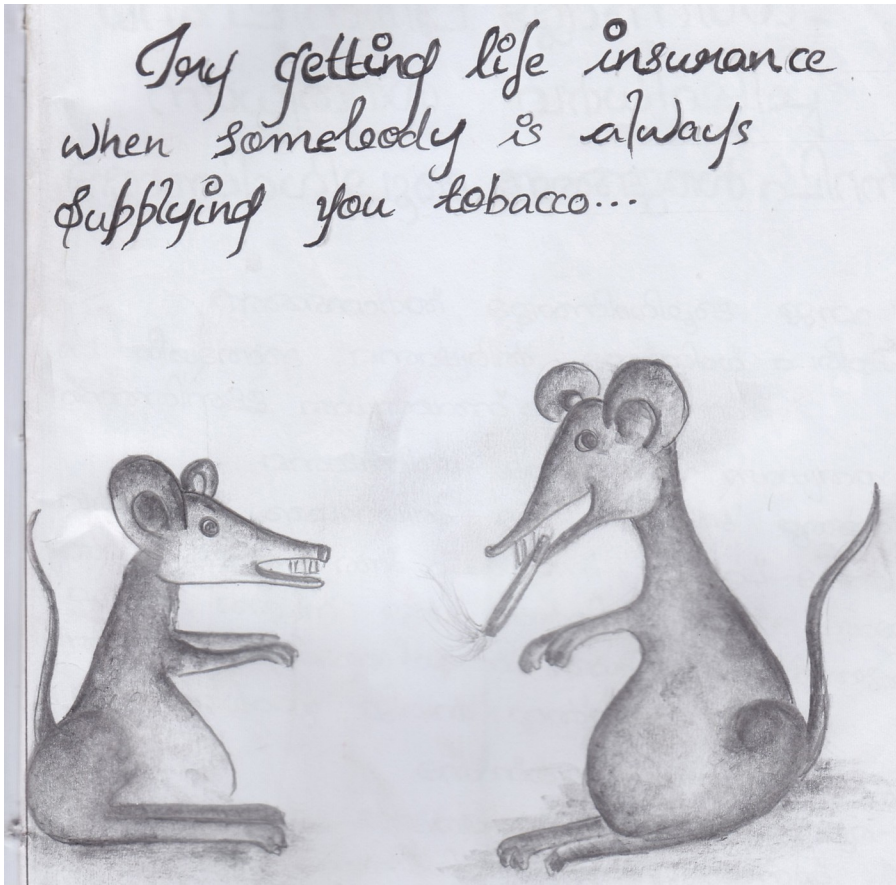 Try getting life insurance
when somebody is always
supplying you tobacco...